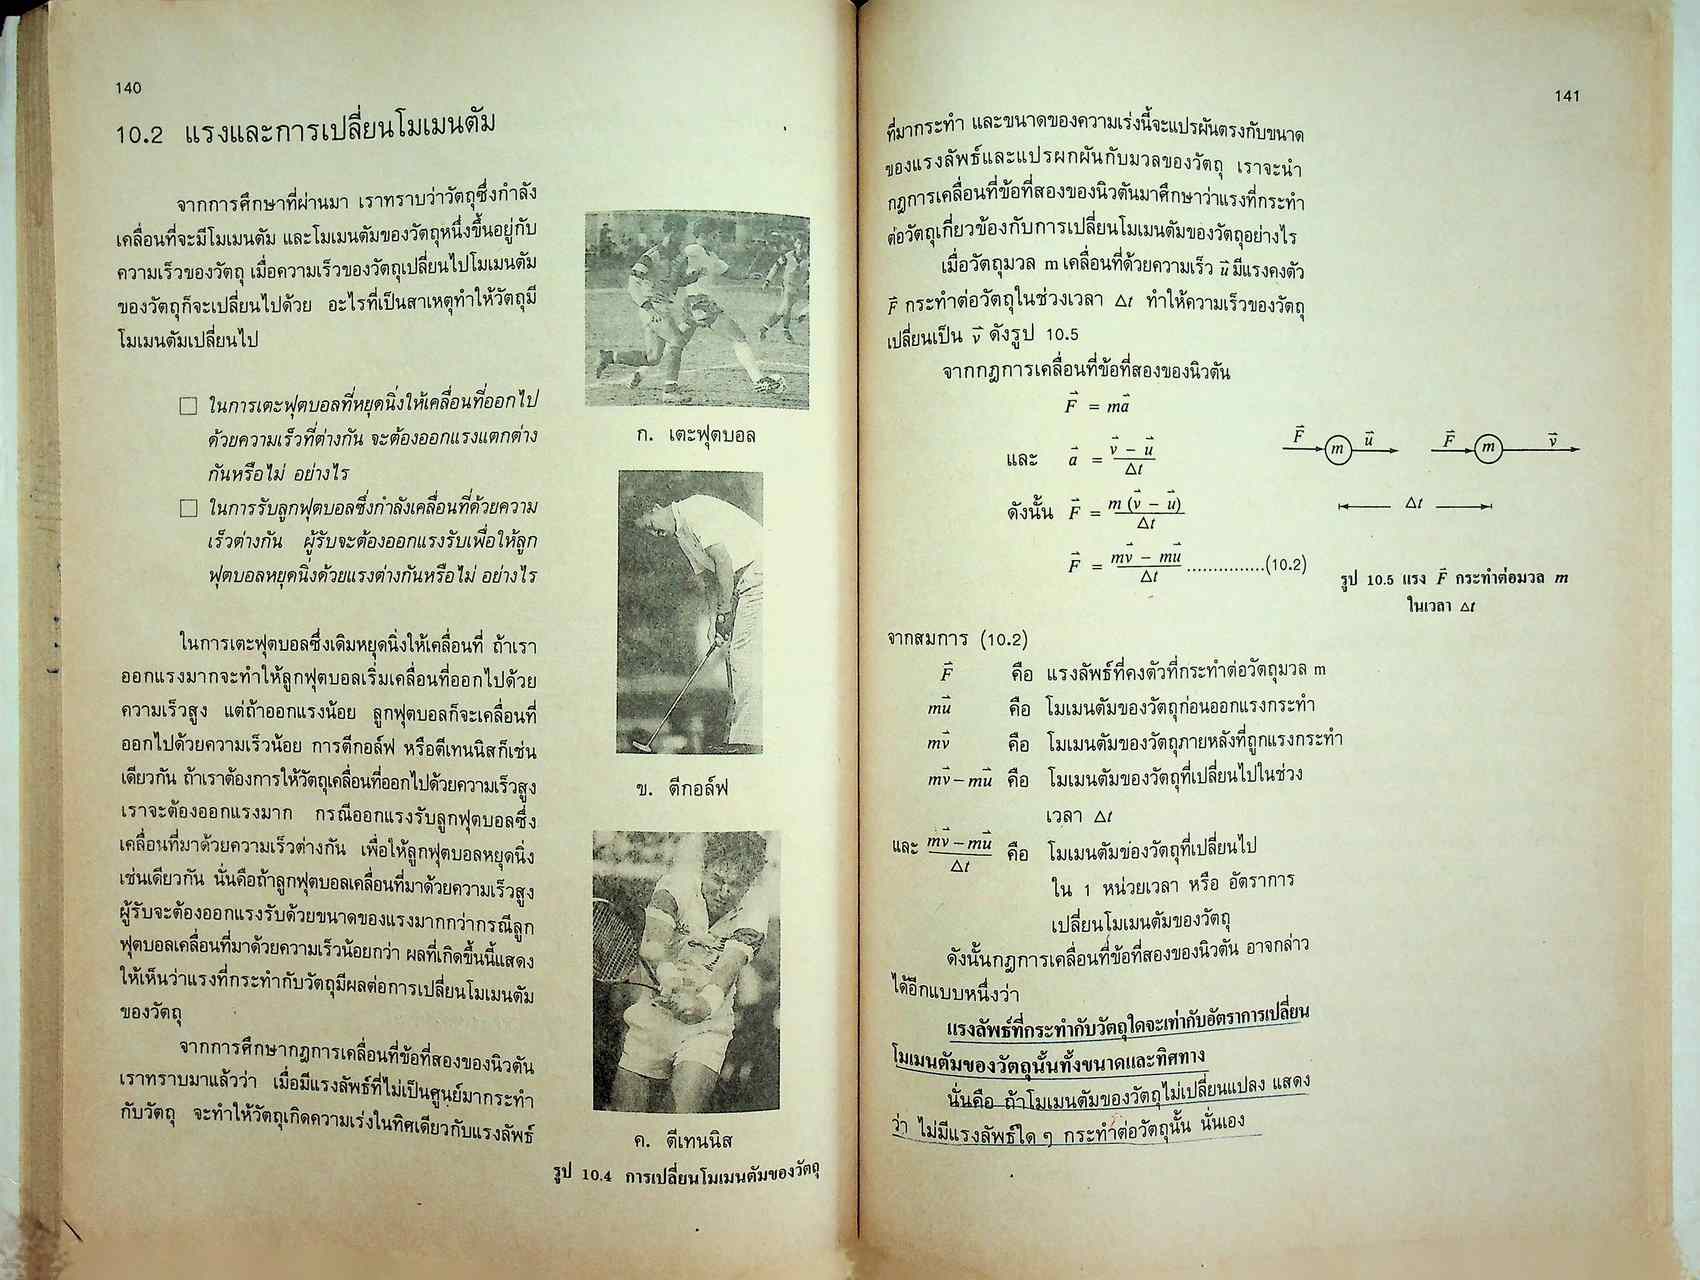 140
10.2 แรงและการเปลี่ยนโมเมนตัม
จากการศึกษาที่ผ่านมา เราทราบว่าวัตถุซึ่งกำลัง
เคลื่อนที่จะมีโมเมนตัม และโมเมนตัมของวัตถุหนึ่งขึ้นอยู่กับ
ความเร็วของวัตถุ เมื่อความเร็วของวัตถุเปลี่ยนไปโมเมนตัม
ของวัตถุก็จะเปลี่ยนไปด้วย อะไรที่เป็นสาเหตุทำให้วัตถุมี
โมเมนตัมเปลี่ยนไป
□ ในการเตะฟุตบอลที่หยุดนิ่งให้เคลื่อนที่ออกไป
ด้วยความเร็วที่ต่างกัน จะต้องออกแรงแตกต่าง
กันหรือไม่ อย่างไร
□ ในการรับลูกฟุตบอลซึ่งกำลังเคลื่อนที่ด้วยความ
เร็วต่างกัน ผู้รับจะต้องออกแรงรับเพื่อให้ลูก
ฟุตบอลหยุดนิ่งด้วยแรงต่างกันหรือไม่ อย่างไร
ในการเตะฟุตบอลซึ่งเดิมหยุดนิ่งให้เคลื่อนที่ ถ้าเรา
ออกแรงมากจะทำให้ลูกฟุตบอลเริ่มเคลื่อนที่ออกไปด้วย
ความเร็วสูง แต่ถ้าออกแรงน้อย ลูกฟุตบอลก็จะเคลื่อนที่
ออกไปด้วยความเร็วน้อย การตีกอล์ฟ หรือตีเทนนิสก็เช่น
เดียวกัน ถ้าเราต้องการให้วัตถุเคลื่อนที่ออกไปด้วยความเร็วสูง
เราจะต้องออกแรงมาก กรณีออกแรงรับลูกฟุตบอลซึ่ง
เคลื่อนที่มาด้วยความเร็วต่างกัน เพื่อให้ลูกฟุตบอลหยุดนิ่ง
เช่นเดียวกัน นั่นคือถ้าลูกฟุตบอลเคลื่อนที่มาด้วยความเร็วสูง
ผู้รับจะต้องออกแรงรับด้วยขนาดของแรงมากกว่ากรณีลูก
ฟุตบอลเคลื่อนที่มาด้วยความเร็วน้อยกว่า ผลที่เกิดขึ้นนี้แสดง
ให้เห็นว่าแรงที่กระทำกับวัตถุมีผลต่อการเปลี่ยนโมเมนตัม
ของวัตถุ
จากการศึกษากฎการเคลื่อนที่ข้อที่สองของนิวตัน
เราทราบมาแล้วว่า เมื่อมีแรงลัพธ์ที่ไม่เป็นศูนย์มากระทำ
กับวัตถุ จะทำให้วัตถุเกิดความเร่งในทิศเดียวกับแรงลัพธ์
ก. เตะฟุตบอล
ข. ตีกอล์ฟ
ค. ตีเทนนิส
รูป 10.4 การเปลี่ยนโมเมนตัมของวัตถุ
141
ที่มากระทำ และขนาดของความเร่งนี้จะแปรผันตรงกับขนาด
ของแรงลัพธ์และแปรผกผันกับมวลของวัตถุ เราจะนำ
กฎการเคลื่อนที่ข้อที่สองของนิวตันมาศึกษาว่าแรงที่กระทำ
ต่อวัตถุเกี่ยวข้องกับการเปลี่ยนโมเมนตัมของวัตถุอย่างไร
เมื่อวัตถุมวล m เคลื่อนที่ด้วยความเร็ว u⃗ มีแรงคงตัว
F⃗ กระทำต่อวัตถุในช่วงเวลา Δt ทำให้ความเร็วของวัตถุ
เปลี่ยนเป็น v⃗ ดังรูป 10.5
จากกฎการเคลื่อนที่ข้อที่สองของนิวตัน
F⃗ = ma⃗
และ a⃗ = (v⃗ − u⃗)/Δt
ดังนั้น F⃗ = m (v⃗ − u⃗)/Δt
F⃗ = (mv⃗ − mu⃗)/Δt ...............(10.2)
F⃗ m u⃗ F⃗ m v⃗
Δt
รูป 10.5 แรง F⃗ กระทำต่อมวล m
ในเวลา Δt
จากสมการ (10.2)
F⃗ คือ แรงลัพธ์ที่คงตัวที่กระทำต่อวัตถุมวล m
mu⃗ คือ โมเมนตัมของวัตถุก่อนออกแรงกระทำ
mv⃗ คือ โมเมนตัมของวัตถุภายหลังที่ถูกแรงกระทำ
mv⃗ − mu⃗ คือ โมเมนตัมของวัตถุที่เปลี่ยนไปในช่วง
เวลา Δt
และ (mv⃗ − mu⃗)/Δt คือ โมเมนตัมของวัตถุที่เปลี่ยนไป
ใน 1 หน่วยเวลา หรือ อัตราการ
เปลี่ยนโมเมนตัมของวัตถุ
ดังนั้นกฎการเคลื่อนที่ข้อที่สองของนิวตัน อาจกล่าว
ได้อีกแบบหนึ่งว่า
แรงลัพธ์ที่กระทำกับวัตถุใดจะเท่ากับอัตราการเปลี่ยน
โมเมนตัมของวัตถุนั้นทั้งขนาดและทิศทาง
นั่นคือ ถ้าโมเมนตัมของวัตถุไม่เปลี่ยนแปลง แสดง
ว่า ไม่มีแรงลัพธ์ใด ๆ กระทำต่อวัตถุนั้น นั่นเอง